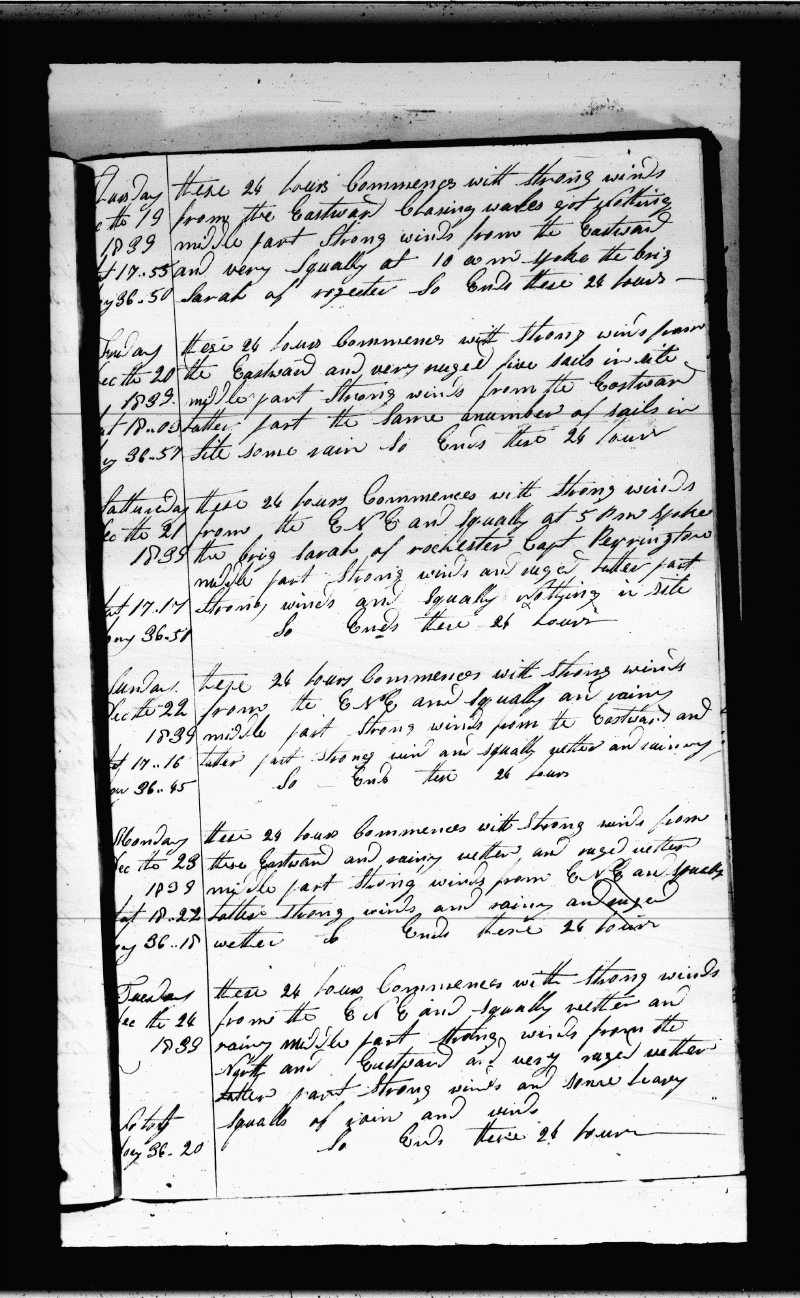 Thursday these 24 hours Commences with Strong winds
Dec the 19 from the Eastward Chasing wales got Nothing
1839 middle part Strong winds from the Eastward
Lat 17..55 and very Squally at 10 am spoke the brig
Long 36..50 Sarah of So Ends these 24 hours
Friday these 24 hours Commences with Strong winds from
Dec the 20 the Eastward and very ruged five sails in site
1839. middle part Strong winds from the Eastward
Lat 18..00 latter part the Same anumber of sails in
Long 36..57 Site some rain So Ends these 24 hours
Satturday these 24 hours Commences with Strong winds
Dec the 21 from the E N E and Squally at 5 Pm Spoke
1839 the brig Sarah of rochester Capt Perrington
middle part Strong winds and ruged latter part
Lat 17..17 Strong winds and Squally Nothing in site
Long 36..51 So Ends these 24 hours
Sunday these 24 hours Commences with Strong winds
Dec the 22 from the E N E and Squally and rainy
1839 middle part Strong winds from the Eastward and
Lat 17..16 latter part Strong wind and Squally wether and rainny
Long 36..45 So Ends these 24 hours
Monday these 24 hours Commences with Strong winds from
Dec the 23 these Eastward and rainy wether and ruged wether
1839 middle part Strong winds from E N E and Squally
Lat 18..22 latter Strong winds and rainny and ruged
Long 36..18 wether So Ends these 24 hours
Tuesday these 24 hours Commences with Strong winds
Dec the 24 from the E N E and Squally wether and
1839 rainy middle part Strong winds from the
North and Eastward and very ruged wether
latter part Strong winds and some heavy
Squalls of rain and winds
Long 36..20 So Ends these 24 hours